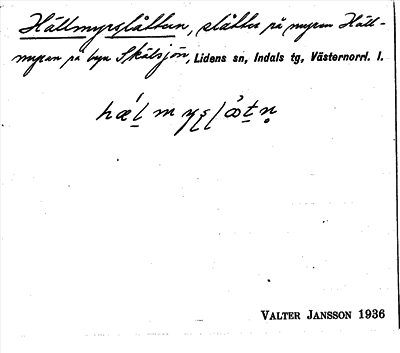 Hällmyrslåttan, slåtta på myren Häll-
myran på byn Skälsjön, Lidens sn, Indals tg, Västernorrl. l.
VALTER JANSSON 1936